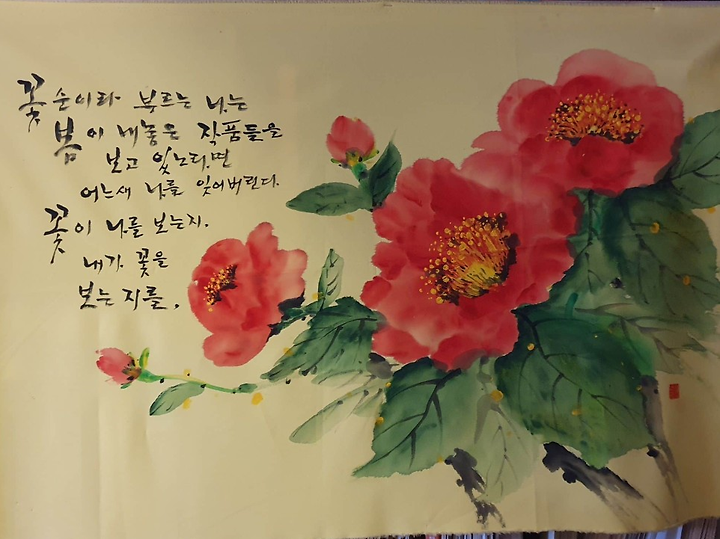 꽃순이라 부르는 나는
봄이 내놓은 작품들을
보고 있노라면
어느새 나를 잊어버린다.
꽃이 나를 보는지.
내가 꽃을
보는지를.